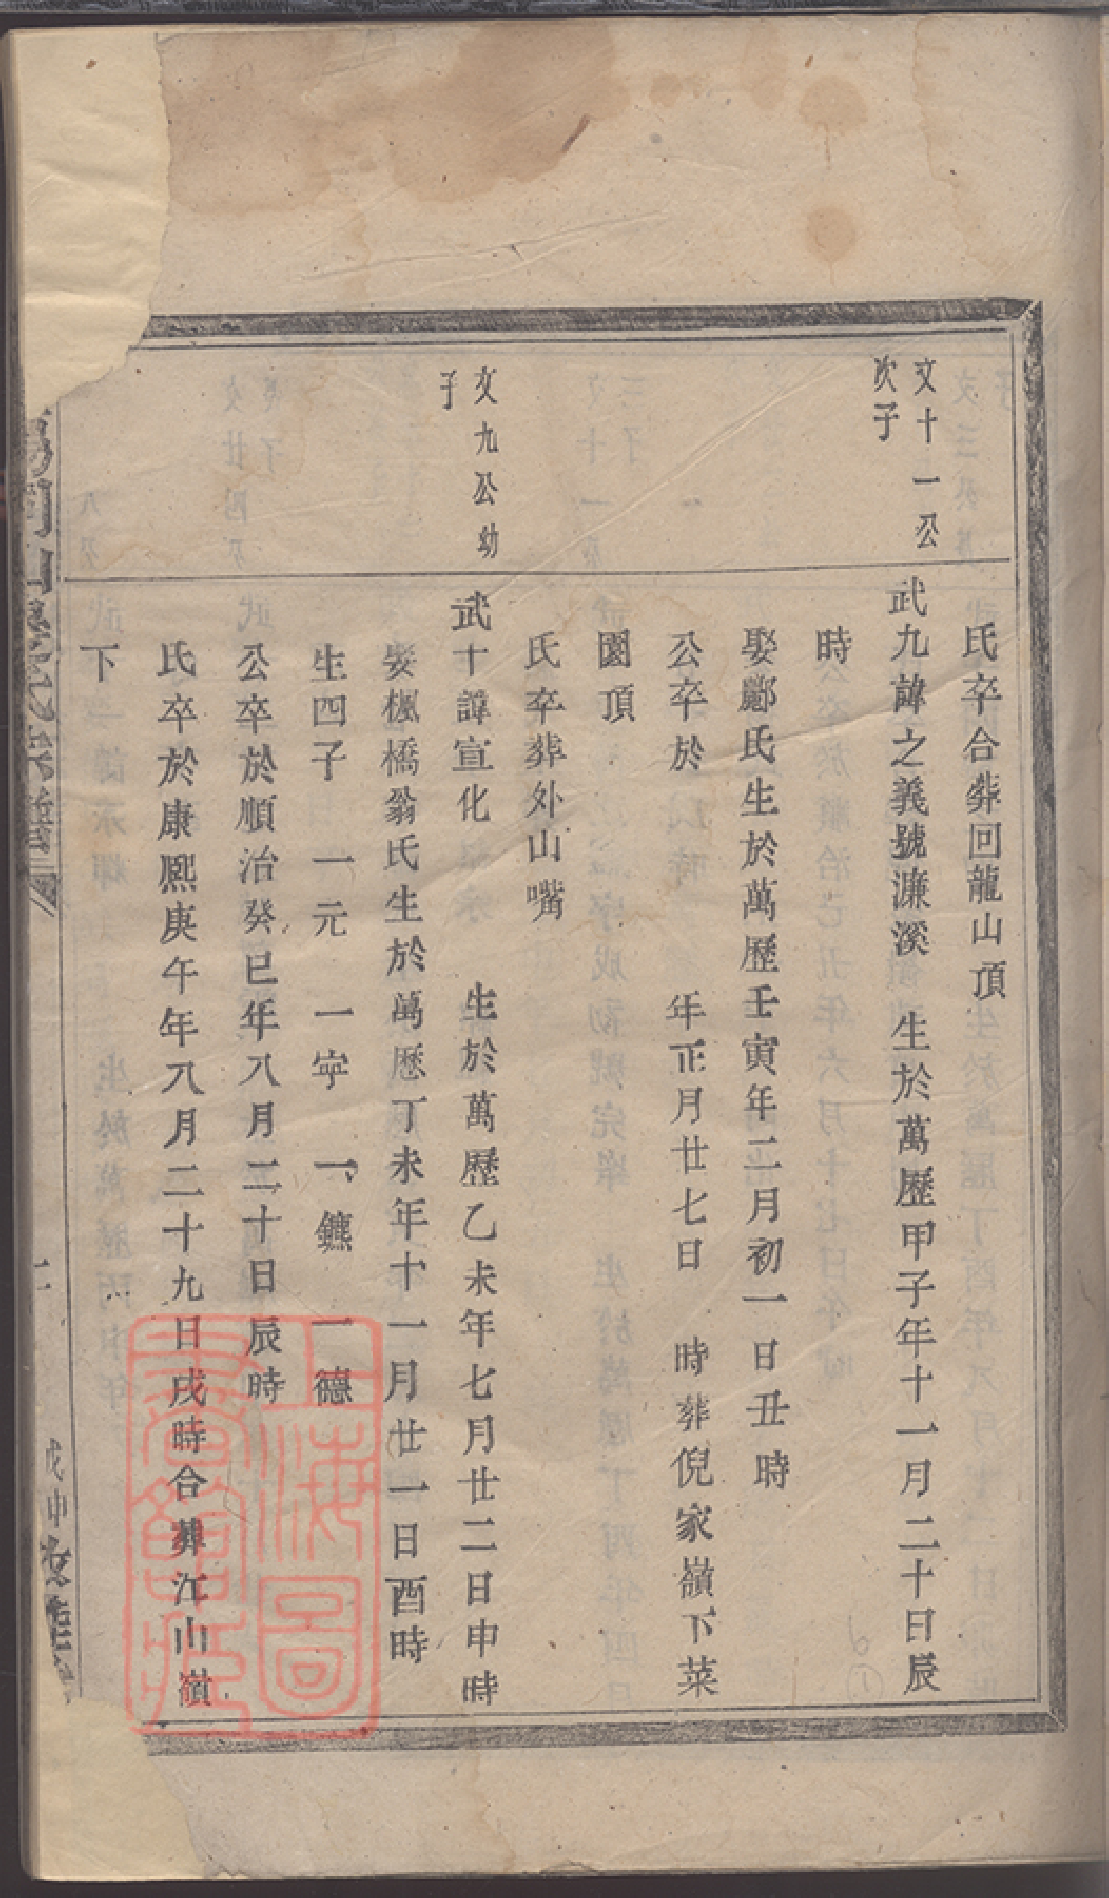 氏卒合葬回龍山頂
文十一公
次子
武九諱之義號濂溪 生於萬歷甲子年十一月二十日辰
時
娶酈氏生於萬歷壬寅年二月初一日丑時
公卒於 年正月廿七日 時葬倪家嶺下菜
園頂
氏卒葬外山嘴
文九公幼
子
武十諱宣化 生於萬歷乙未年七月廿二日申時
娶楓橋翁氏生於萬歷丁未年十一月廿一日酉時
生四子 一元 一寧 一鑣 一德
公卒於順治癸巳年八月二十日辰時
氏卒於康熙庚午年八月二十九日戌時合葬江山嶺
下
上海圖
書館藏